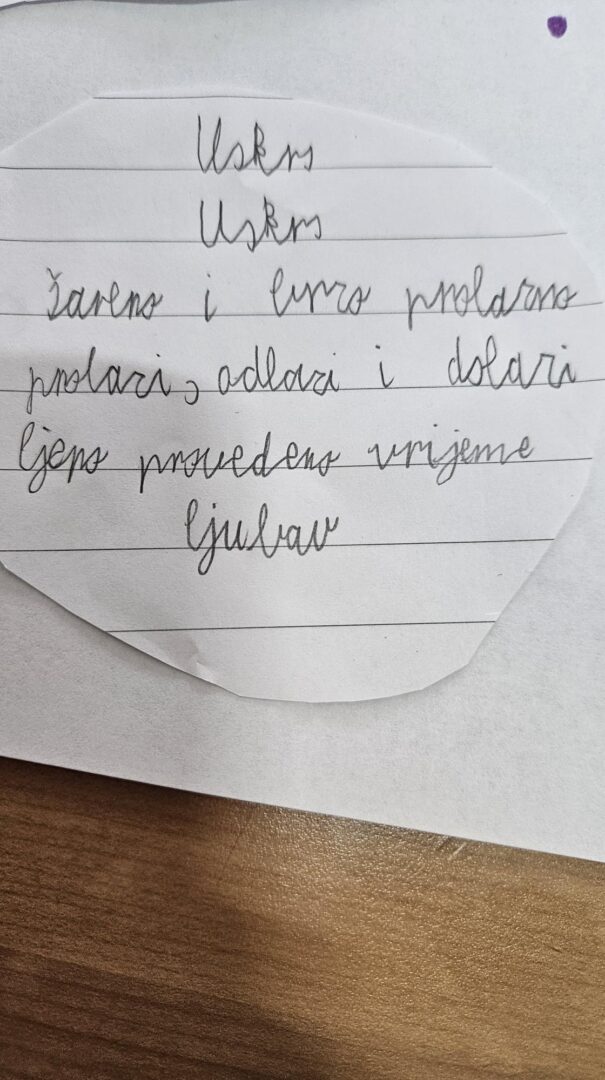 Uskrs
Uskrs
šareno i brzo prolazno
prolazi, odlazi i dolazi
ljepo provedeno vrijeme
ljubav